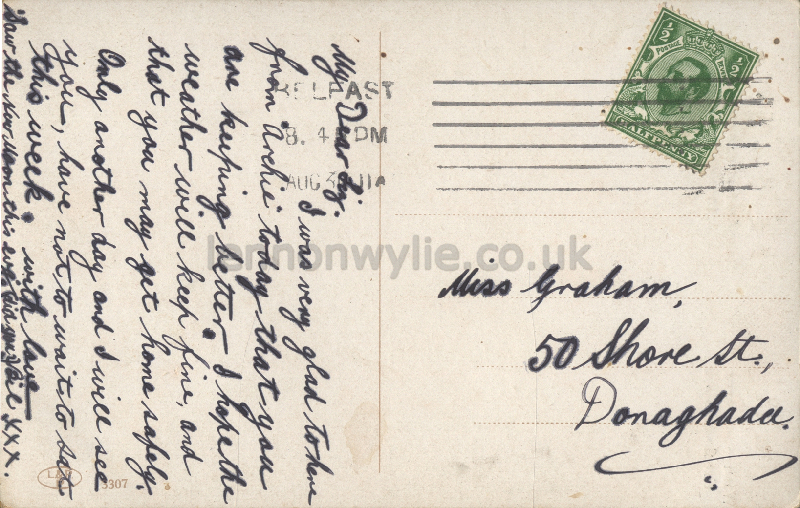 My Dear
I was very glad to hear
from Archie to day that you
are keeping better. I hope the
weather will keep fine, and
that you may get home safely.
Only another day and I will see
you, have not to wait to Sat
this week. with love
Saw the New Moon this evg did you xxx.
BELFAST
8.4 PM
AUG 3 11
½ ½
POSTAGE
HALFPENNY
Miss Graham,
50 Shore St.,
Donaghadee.
lennonwylie.co.uk
3307